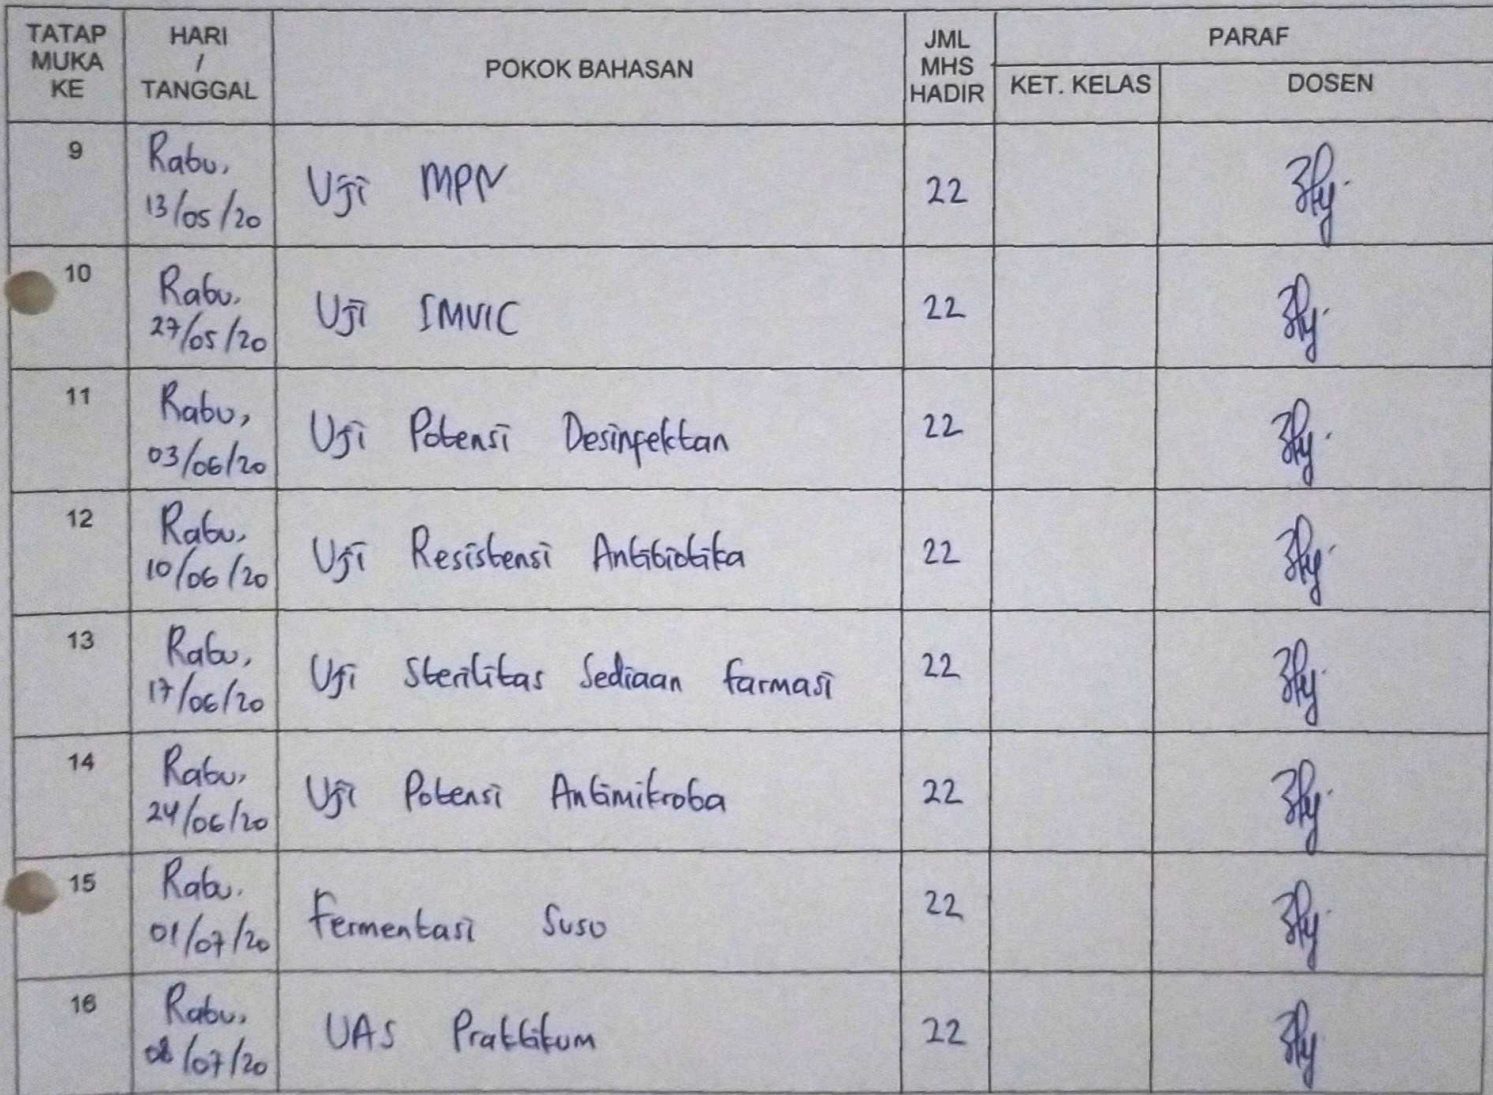 TATAP MUKA KE
HARI / TANGGAL
POKOK BAHASAN
JML MHS HADIR
PARAF
KET. KELAS
DOSEN
9
Rabu,
13/05/20
Uji MPN
22
10
Rabu.
27/05/20
Uji IMVIC
22
11
Rabu,
03/06/20
Uji Potensi Desinfektan
22
12
Rabu,
10/06/20
Uji Resistensi Antibiotika
22
13
Rabu,
17/06/20
Uji Sterilitas Sediaan farmasi
22
14
Rabu,
24/06/20
Uji Potensi Antimikroba
22
15
Rabu.
01/07/20
Fermentasi Susu
22
16
Rabu,
08/07/20
UAS Praktikum
22